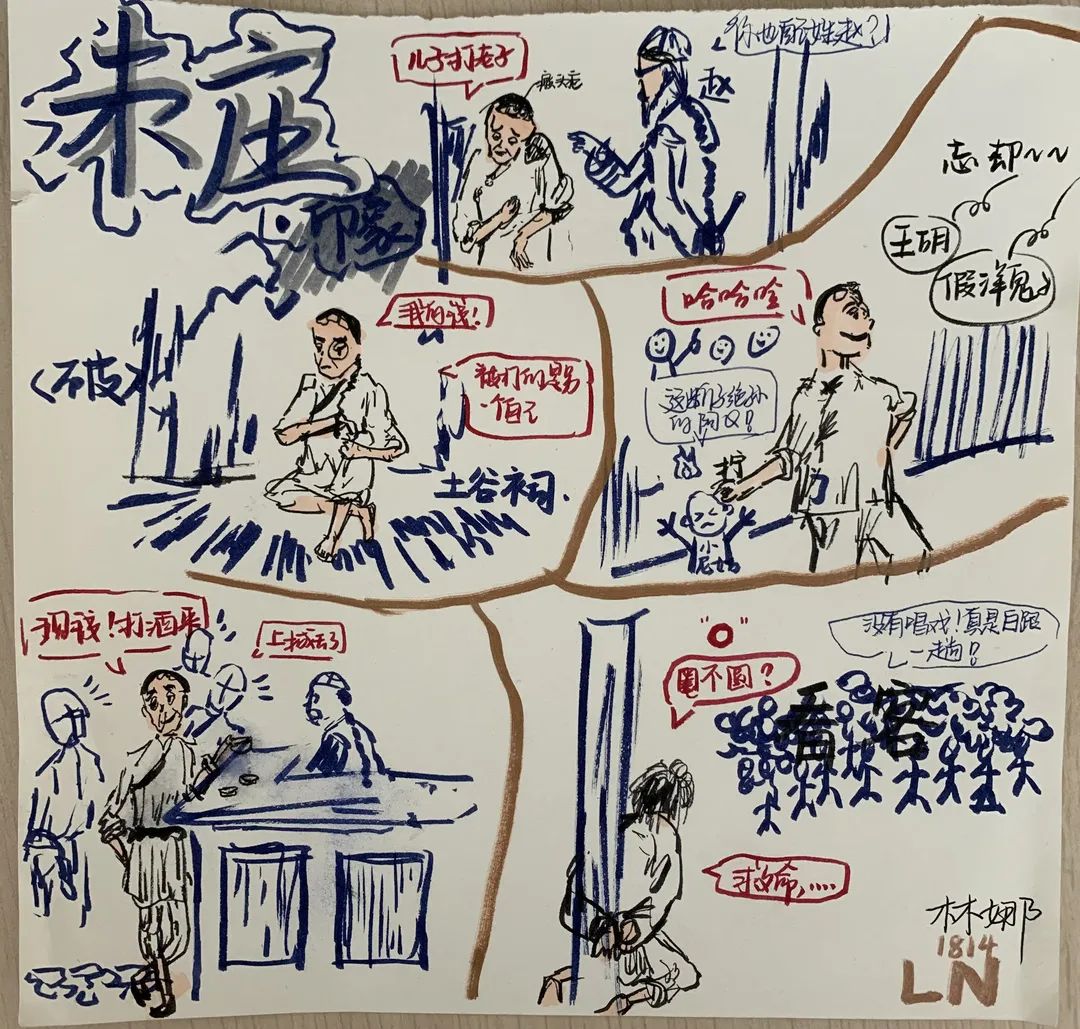 未庄
·印象
儿子打老子
癞头疮
你也配姓赵?!
赵
忘却~~
王胡
假洋鬼子
我的钱!
被打的是另
一个自己
土谷祠.
哈哈哈
这断子绝孙
的阿Q!
拧
小
尼姑
现钱!打酒来
上城去了
没有唱戏!真是白跟
一趟!!
"O"
圆不圆?
看客
救命,.....
林娜
1814
LN